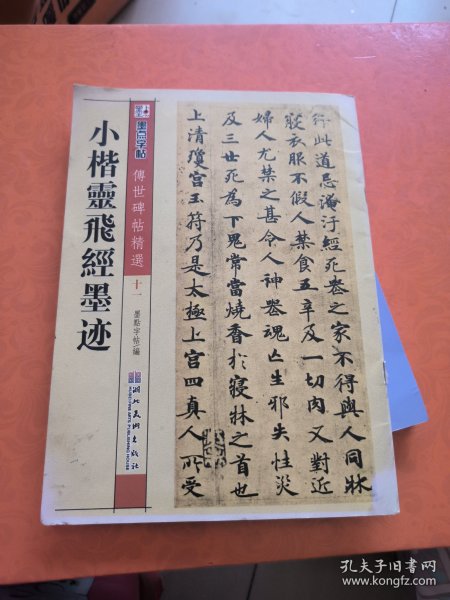 行此道忌淹汙經死喪之家不得與人同牀
寢衣服不假人禁食五辛及一切肉又對近
婦人尤禁之甚令人神喪魂亡生邪失性災
及三世死為下鬼常當燒香於寢牀之首也
上清瓊宮玉符乃是太極上宮四真人所受
墨点字帖
傳世碑帖精選
十一
墨點字帖/編
小楷靈飛經墨迹
湖北美術出版社
HUBEI FINE ARTS PUBLISHING HOUSE
孔夫子旧书网
www.kongfz.com